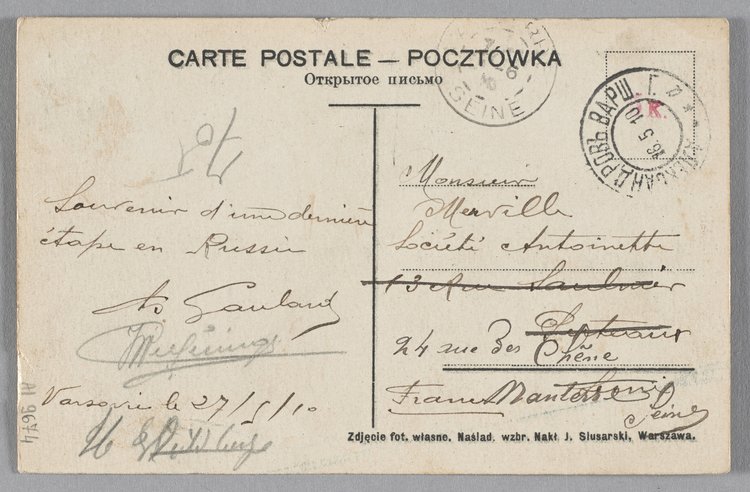 CARTE POSTALE — POCZTÓWKA
Открытое письмо
SEINE
АЛЕКСАНДРОВЪ ВАРШ. Г.
16.5.10
К.
Souvenir d'une dernière
étape en Russie
Varsovie le 27/5/10
Monsieur
Merville
Société Antoinette
13 Rue Saulnier
Puteaux
24 rue des Chêne
France Nanterre
Seine
Zdjęcie fot. własne. Naślad. wzbr. Nakł. J. Slusarski, Warszawa.
AI 9674